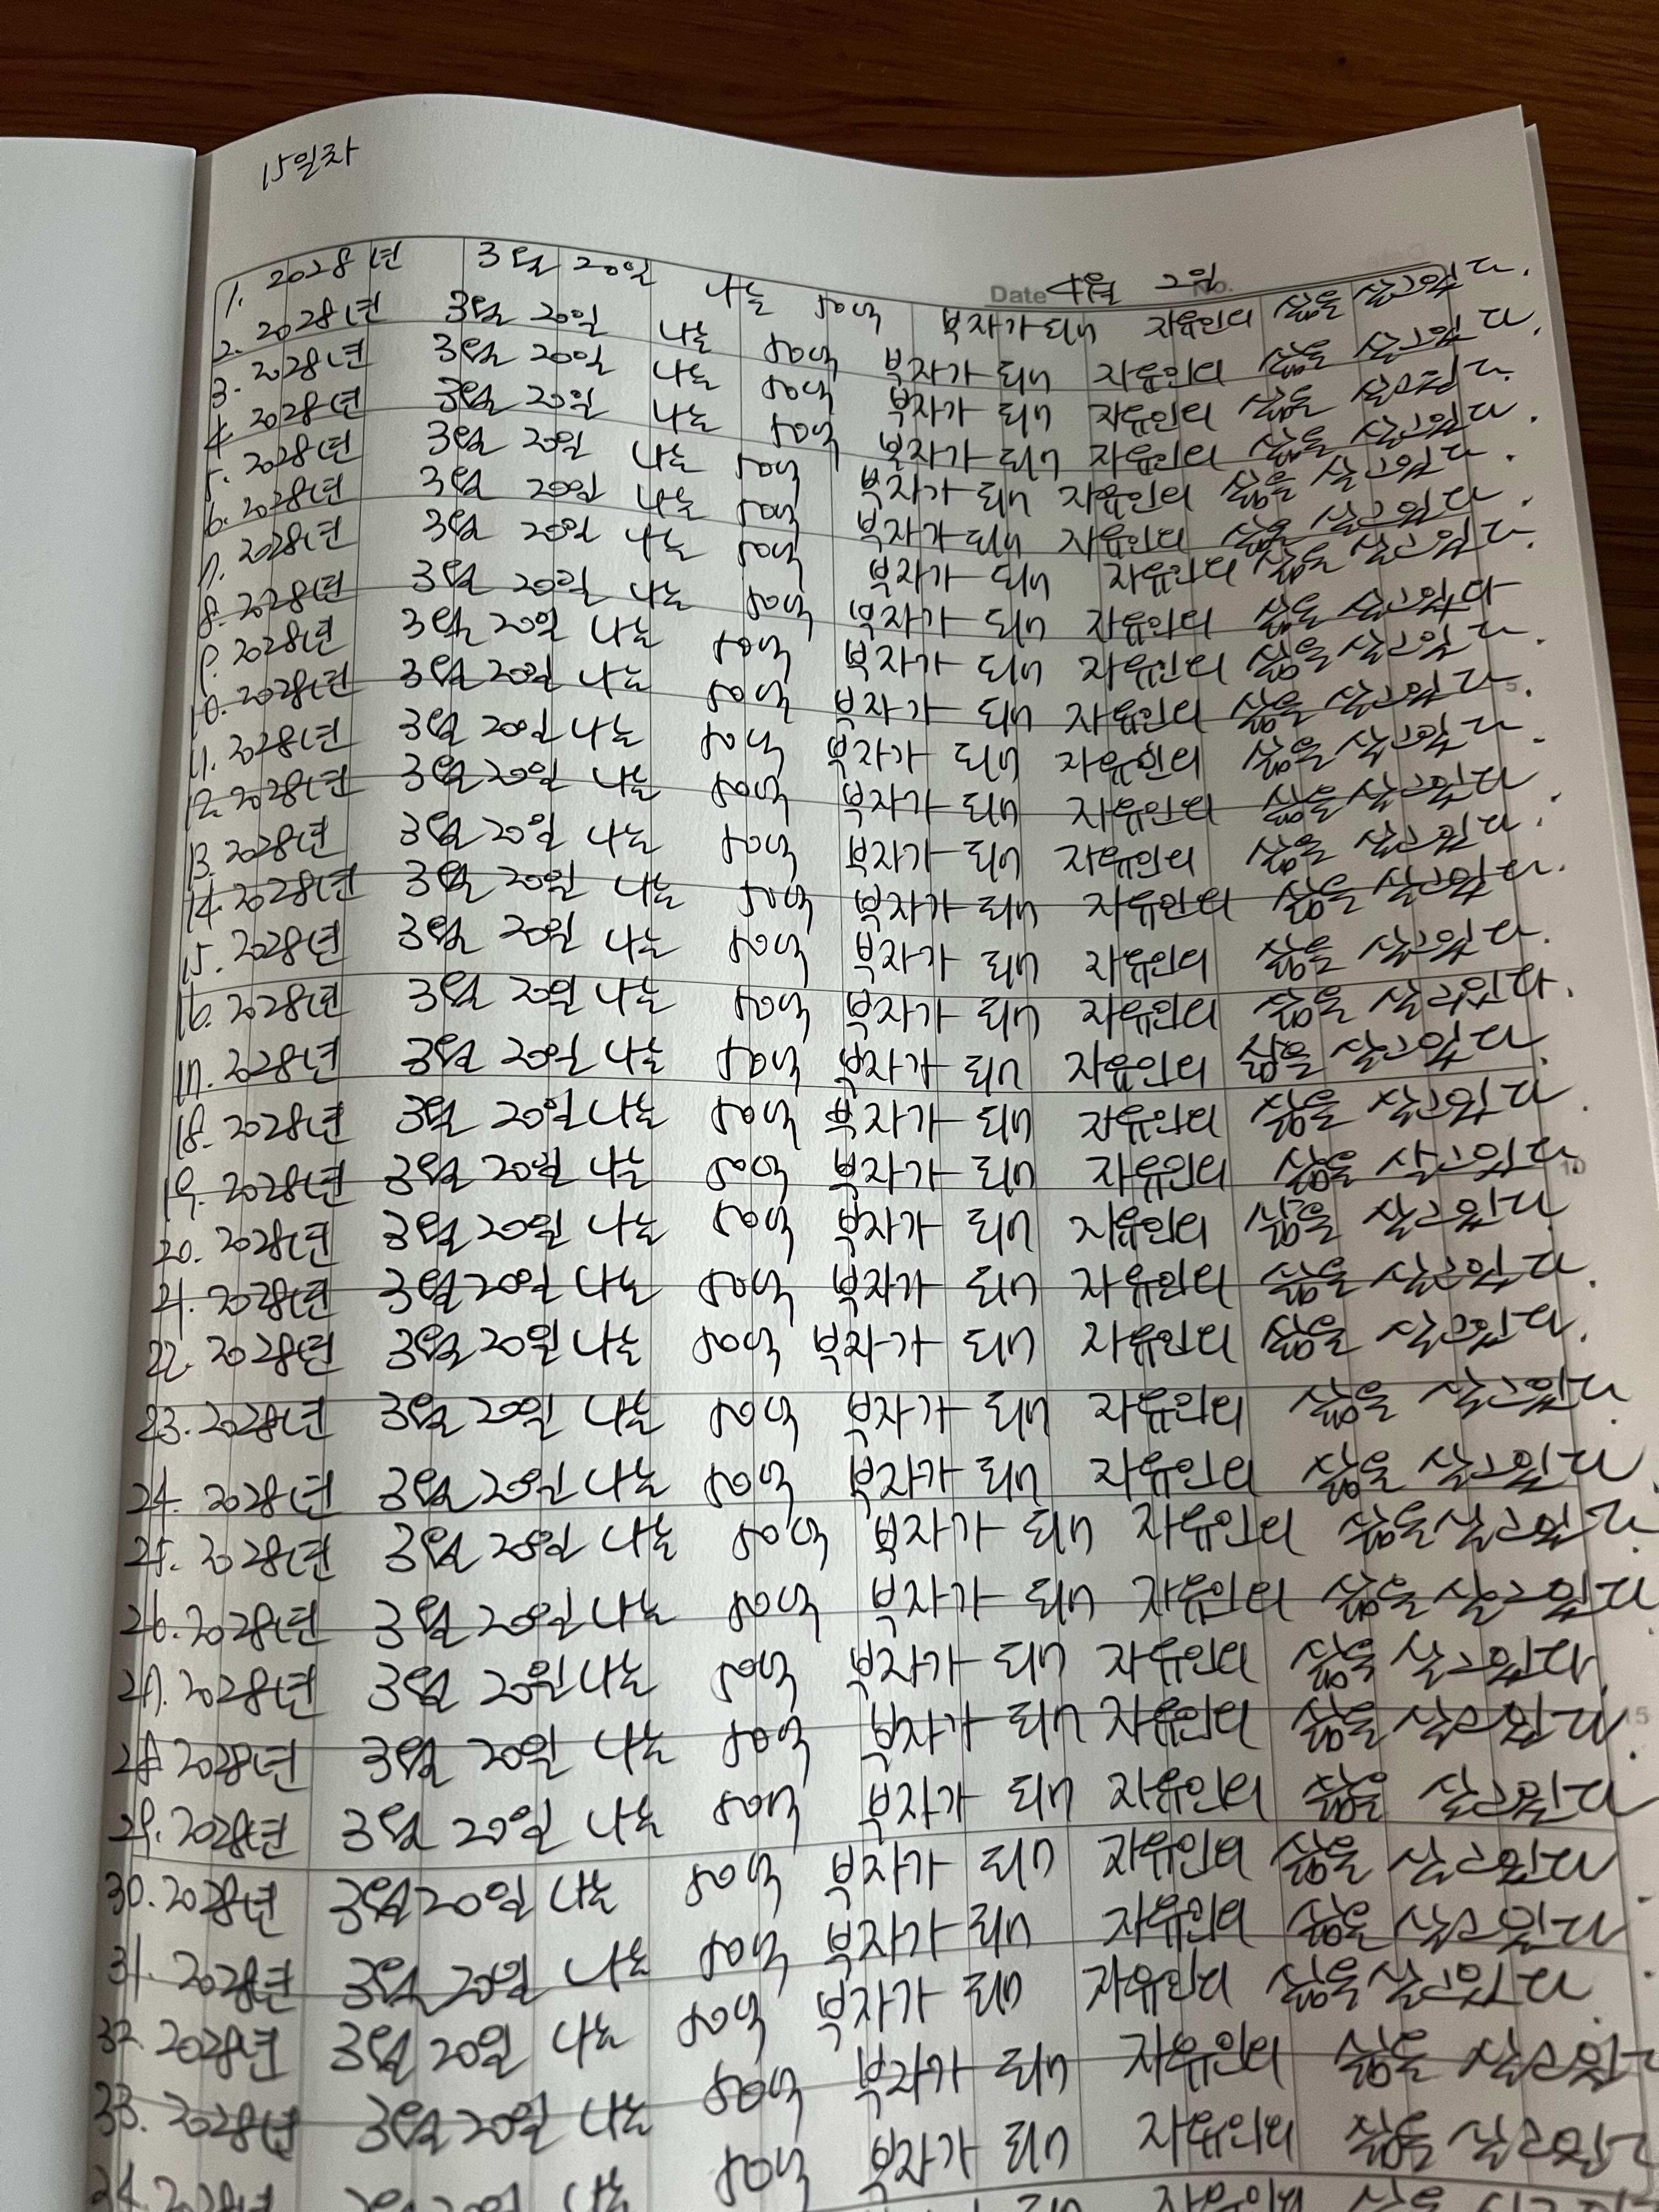 15일차
Date 4월 2일 No.
1. 2028년 3월 20일 나는 50억 부자가 되어 자유인의 삶을 살고있다.
2. 2028년 3월 20일 나는 50억 부자가 되어 자유인의 삶을 살고있다.
3. 2028년 3월 20일 나는 50억 부자가 되어 자유인의 삶을 살고있다.
4. 2028년 3월 20일 나는 50억 부자가 되어 자유인의 삶을 살고있다.
5. 2028년 3월 20일 나는 50억 부자가 되어 자유인의 삶을 살고있다.
6. 2028년 3월 20일 나는 50억 부자가 되어 자유인의 삶을 살고있다.
7. 2028년 3월 20일 나는 50억 부자가 되어 자유인의 삶을 살고있다.
8. 2028년 3월 20일 나는 50억 부자가 되어 자유인의 삶을 살고있다
9. 2028년 3월 20일 나는 50억 부자가 되어 자유인의 삶을 살고있다.
10. 2028년 3월 20일 나는 50억 부자가 되어 자유인의 삶을 살고있다. 5
11. 2028년 3월 20일 나는 50억 부자가 되어 자유인의 삶을 살고있다.
12. 2028년 3월 20일 나는 50억 부자가 되어 자유인의 삶을 살고있다.
13. 2028년 3월 20일 나는 50억 부자가 되어 자유인의 삶을 살고있다.
14. 2028년 3월 20일 나는 50억 부자가 되어 자유인의 삶을 살고있다.
15. 2028년 3월 20일 나는 50억 부자가 되어 자유인의 삶을 살고있다.
16. 2028년 3월 20일 나는 50억 부자가 되어 자유인의 삶을 살고있다.
17. 2028년 3월 20일 나는 50억 부자가 되어 자유인의 삶을 살고있다.
18. 2028년 3월 20일 나는 50억 부자가 되어 자유인의 삶을 살고있다.
19. 2028년 3월 20일 나는 50억 부자가 되어 자유인의 삶을 살고있다. 10
20. 2028년 3월 20일 나는 50억 부자가 되어 자유인의 삶을 살고있다.
21. 2028년 3월 20일 나는 50억 부자가 되어 자유인의 삶을 살고있다.
22. 2028년 3월 20일 나는 50억 부자가 되어 자유인의 삶을 살고있다.
23. 2028년 3월 20일 나는 50억 부자가 되어 자유인의 삶을 살고있다.
24. 2028년 3월 20일 나는 50억 부자가 되어 자유인의 삶을 살고있다.
25. 2028년 3월 20일 나는 50억 부자가 되어 자유인의 삶을 살고있다.
26. 2028년 3월 20일 나는 50억 부자가 되어 자유인의 삶을 살고있다.
27. 2028년 3월 20일 나는 50억 부자가 되어 자유인의 삶을 살고있다.
28. 2028년 3월 20일 나는 50억 부자가 되어 자유인의 삶을 살고있다. 15
29. 2028년 3월 20일 나는 50억 부자가 되어 자유인의 삶을 살고있다
30. 2028년 3월 20일 나는 50억 부자가 되어 자유인의 삶을 살고있다.
31. 2028년 3월 20일 나는 50억 부자가 되어 자유인의 삶을 살고있다.
32. 2028년 3월 20일 나는 50억 부자가 되어 자유인의 삶을 살고있다.
33. 2028년 3월 20일 나는 50억 부자가 되어 자유인의 삶을 살고있다
34. 2028년 3월 20일 나는 50억 부자가 되어 자유인의 삶을